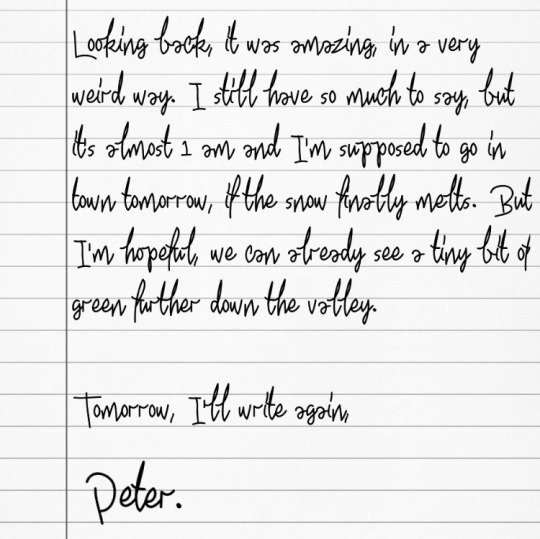 Looking back, it was amazing, in a very
weird way. I still have so much to say, but
it's almost 1 am and I'm supposed to go in
town tomorrow, if the snow finally melts. But
I'm hopeful, we can already see a tiny bit of
green further down the valley.
Tomorrow, I'll write again,
Peter.